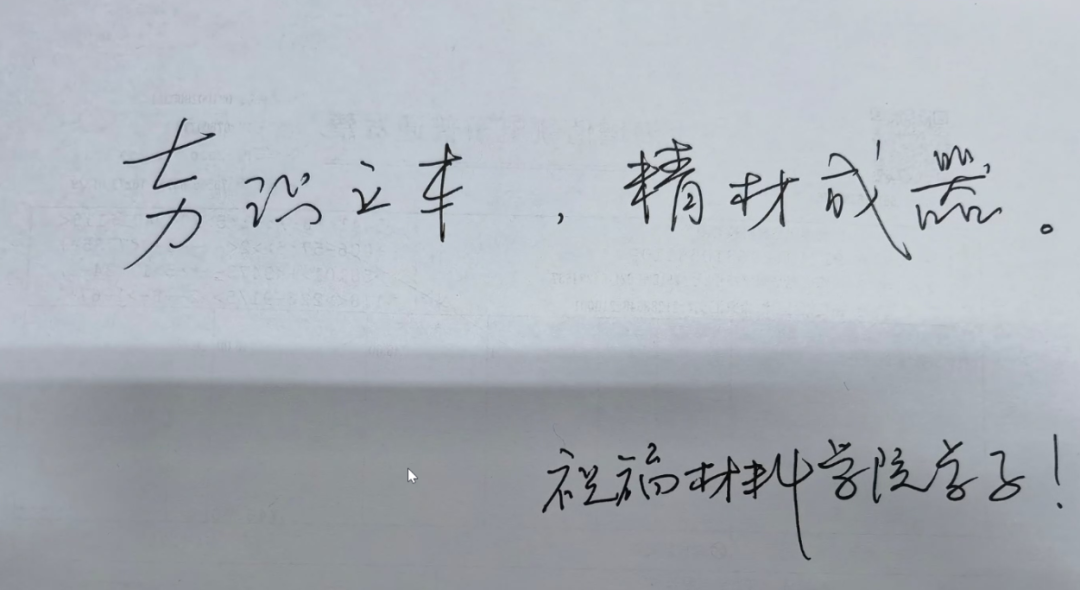 夯识立本，精材成器。
祝福材料学院学子！